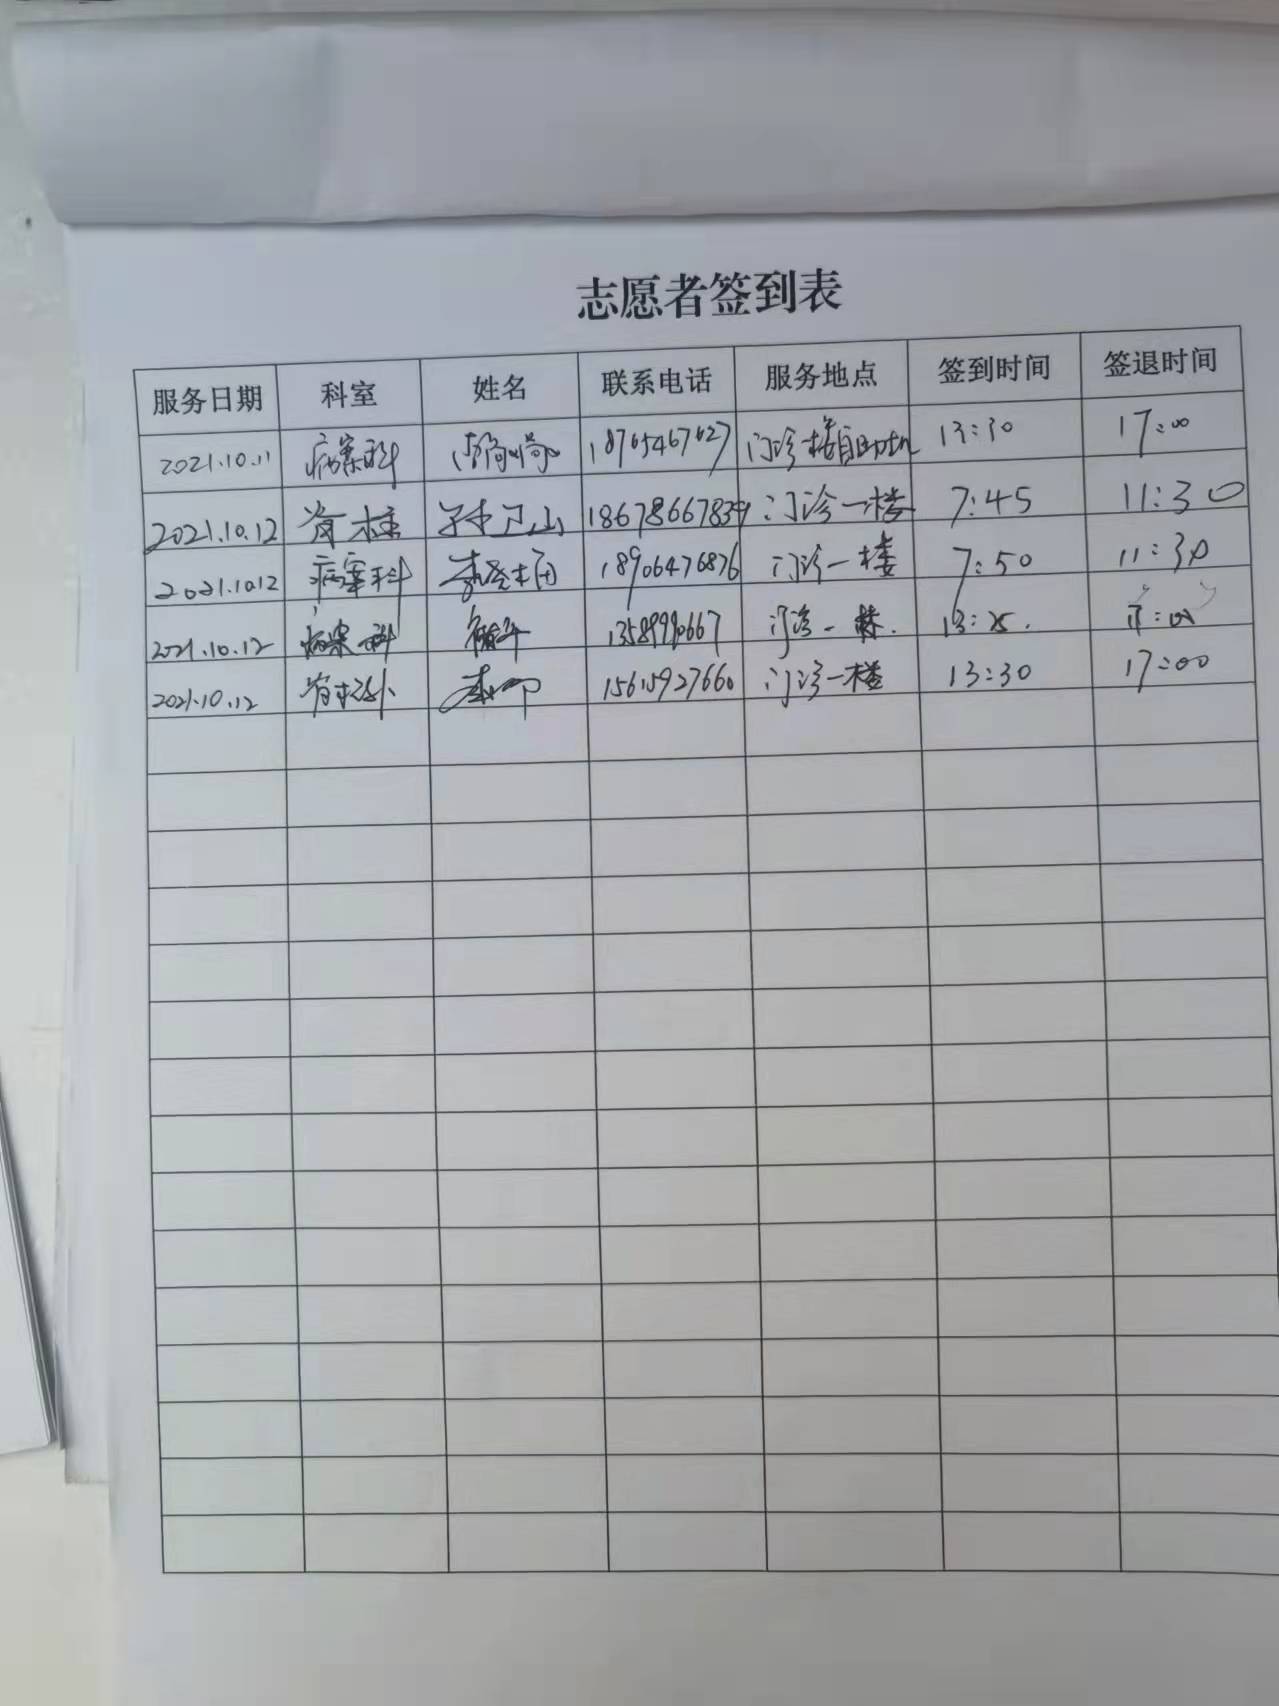 志愿者签到表
服务日期 科室 姓名 联系电话 服务地点 签到时间 签退时间
2021.10.11 病案科 18765467627 门诊一楼自助机 13:30 17:00
2021.10.12 脊柱 孙卫山 18678667839 门诊一楼 7:45 11:30
2021.10.12 病案科 18906476876 门诊一楼 7:50 11:30
2021.10.12 病案科 门诊一楼. 13:25. 17:00
2021.10.12 脊柱外 15615927660 门诊一楼 13:30 17:00